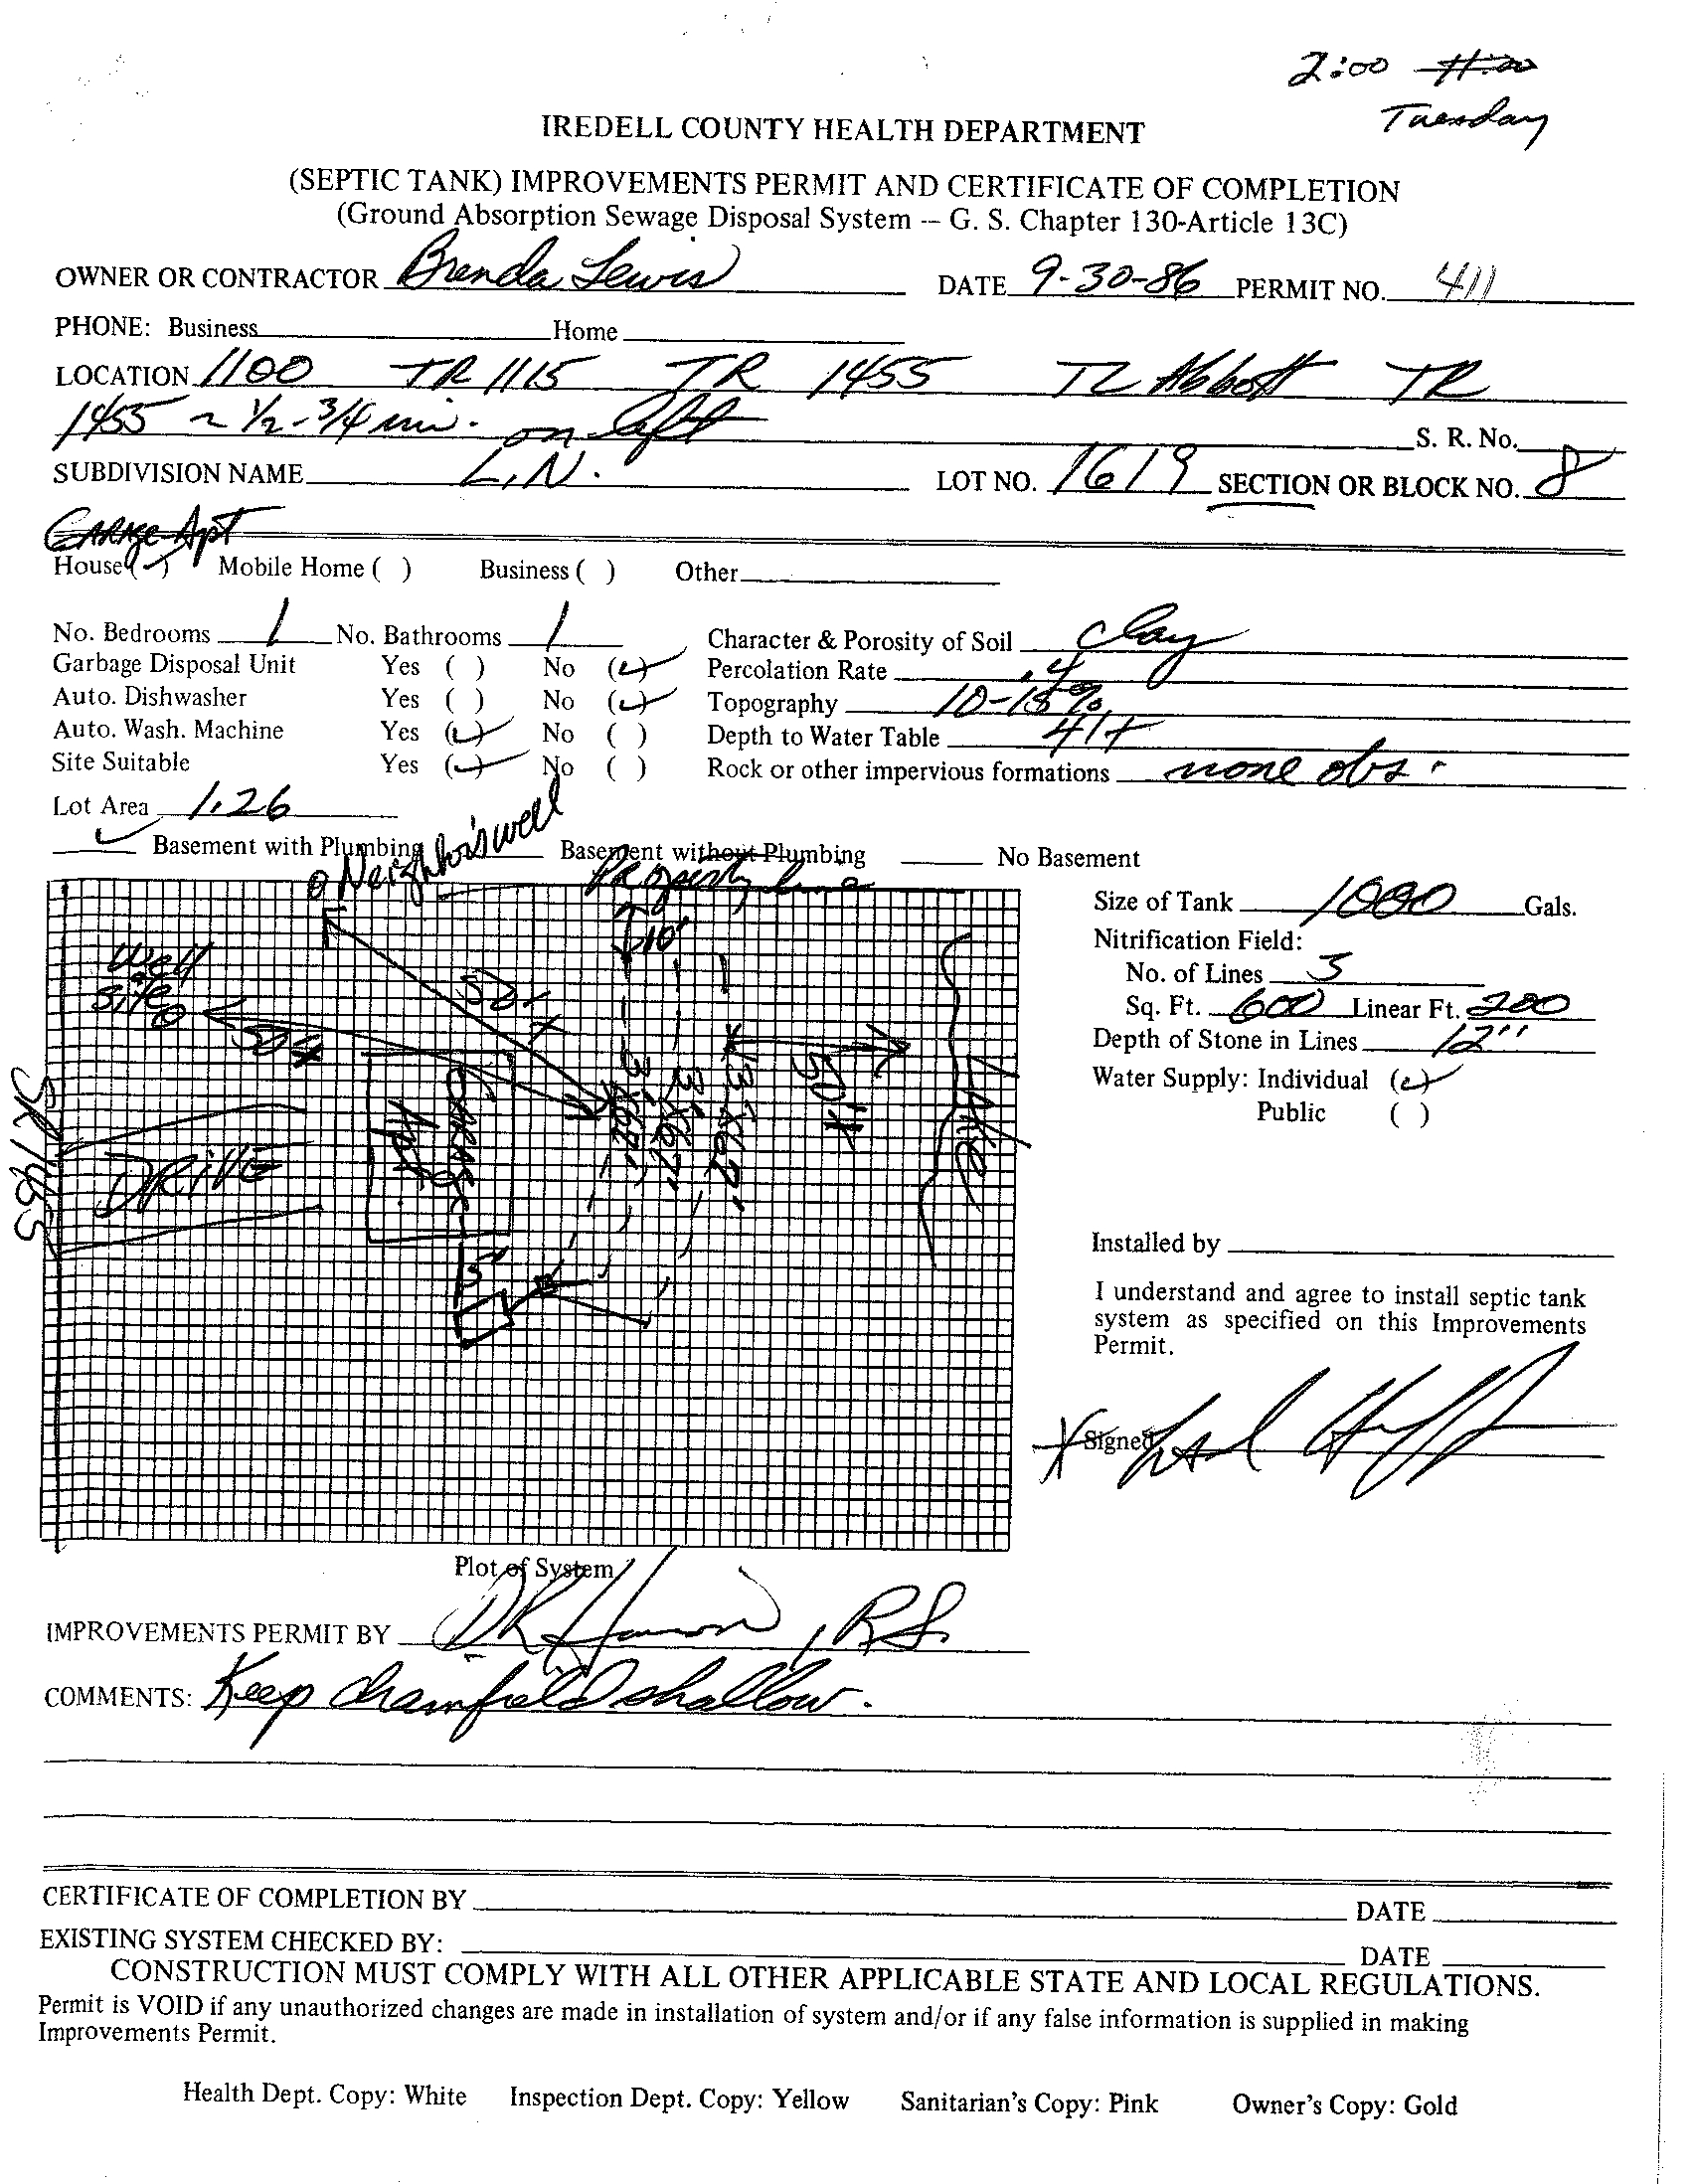 2:00 11:00
Tuesday
IREDELL COUNTY HEALTH DEPARTMENT
(SEPTIC TANK) IMPROVEMENTS PERMIT AND CERTIFICATE OF COMPLETION
(Ground Absorption Sewage Disposal System -- G. S. Chapter 130-Article 13C)
OWNER OR CONTRACTOR Brenda Lewis DATE 9-30-86 PERMIT NO. 411
PHONE: Business Home
LOCATION 1100 TR 1115 TR 1455 TL Abbott TR
1455 ~ 1/2-3/4 mi. on left S. R. No.
SUBDIVISION NAME L.N. LOT NO. 1619 SECTION OR BLOCK NO. 8
GARAGE Apt
House ( ) Mobile Home ( ) Business ( ) Other
No. Bedrooms 1 No. Bathrooms 1 Character & Porosity of Soil clay
Garbage Disposal Unit Yes ( ) No (✓) Percolation Rate .4
Auto. Dishwasher Yes ( ) No (✓) Topography 10-15%
Auto. Wash. Machine Yes (✓) No ( ) Depth to Water Table 4'+
Site Suitable Yes (✓) No ( ) Rock or other impervious formations none obs.
Lot Area 1.26
✓ Basement with Plumbing Basement without Plumbing No Basement
Neighbor's well
Property Line
Size of Tank 1000 Gals.
Nitrification Field:
No. of Lines 3
Sq. Ft. 600 Linear Ft. 200
Depth of Stone in Lines 12"
Water Supply: Individual (✓)
Public ( )
10'
Well
Site
50+
50+
3'X67'
3'X67'
3'X67'
50'+
LAKE
GARAGE
Apt.
DRIVE
SR 1455
15'
Installed by
I understand and agree to install septic tank
system as specified on this Improvements
Permit.
X Signed
Plot of System
IMPROVEMENTS PERMIT BY , RS.
COMMENTS: Keep drainfield shallow.
CERTIFICATE OF COMPLETION BY DATE
EXISTING SYSTEM CHECKED BY: DATE
CONSTRUCTION MUST COMPLY WITH ALL OTHER APPLICABLE STATE AND LOCAL REGULATIONS.
Permit is VOID if any unauthorized changes are made in installation of system and/or if any false information is supplied in making
Improvements Permit.
Health Dept. Copy: White Inspection Dept. Copy: Yellow Sanitarian's Copy: Pink Owner's Copy: Gold